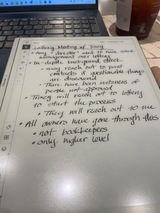 Lottery Meeting of Tracy
• Any "director" and to have some
management over lottery
• In-depth background check
• may reach out to past
contacts & questionable things
are discovered
• There have been instances of
people not approved
• Tracy will reach out to lottery
to start the process
• They will reach out to me
• All owners have gone through this
• not bookkeepers
• only higher level